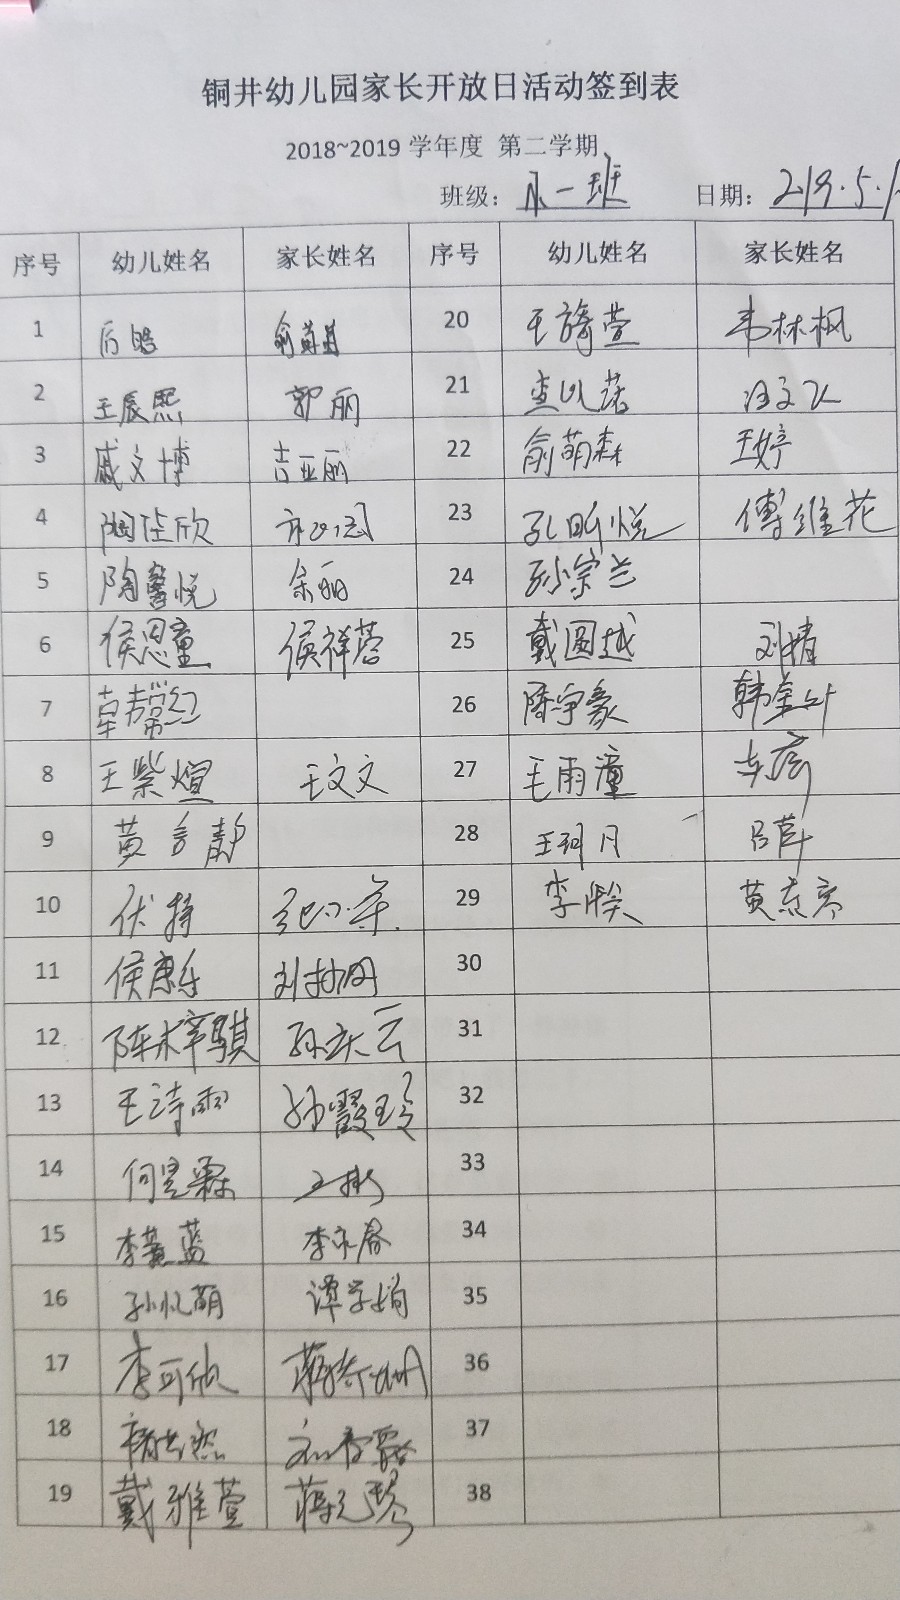 铜井幼儿园家长开放日活动签到表
2018~2019 学年度 第二学期
班级: 小一班 日期: 219.5.
序号 幼儿姓名 家长姓名 序号 幼儿姓名 家长姓名
1 20 王旖萱 韦林枫
2 王辰熙 郭丽 21 查以诺 汪文飞
3 戚文博 吉亚丽 22 俞萌森 王婷
4 陶佳欣 23 孔昕悦 傅维花
5 陶馨悦 余丽 24 孙宗兰
6 侯恩童 侯祥蓉 25 戴圆越 刘婧
7 26 陈宇豪 韩金
8 王紫煊 王文文 27 毛雨潼
9 黄言静 28 王珂月 吕萍
10 伏 29 李 黄
11 侯康乐 刘 30
12 陈梓骐 孙庆云 31
13 王诗雨 孙霞玲 32
14 何昱霖 王彬 33
15 李 蓝 李 春 34
16 孙忆萌 谭学娟 35
17 李可欣 蒋 36
18 37
19 戴雅萱 蒋元琴 38